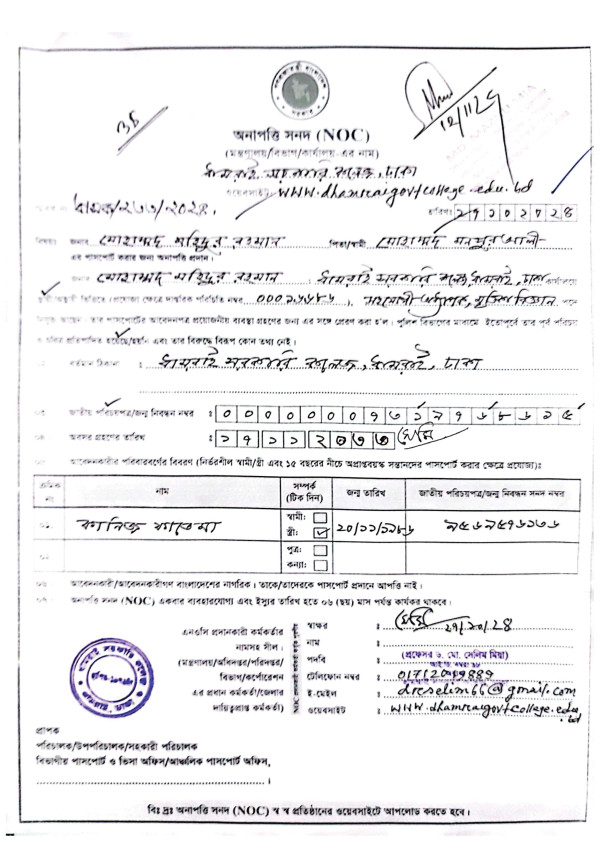 অনাপত্তি সনদ (NOC)
(মন্ত্রণালয়/বিভাগ/কার্যালয়-এর নাম)
ধামরাই সরকারি কলেজ, ঢাকা
ওয়েবসাইট: www.dhamraigovtcollege.edu.bd
12/11/24
তারিখঃ
বিষয়ঃ জনাব মোহাম্মদ মহিদুর রহমান পিতা/স্বামী মোহাম্মদ মনছুর আলী-
এর পাসপোর্ট করার জন্য অনাপত্তি প্রদান।
জনাব মোহাম্মদ মহিদুর রহমান ধামরাই সরকারি কলেজ, ধামরাই, ঢাকা কার্যালয়ে
স্থায়ী/অস্থায়ী ভিত্তিতে (প্রযোজ্য ক্ষেত্রে দাপ্তরিক পরিচিতি নম্বর ), সহযোগী অধ্যাপক, পদে
নিযুক্ত আছেন। তার পাসপোর্টের আবেদনপত্র প্রয়োজনীয় ব্যবস্থা গ্রহণের জন্য এর সঙ্গে প্রেরণ করা হ'ল। পুলিশ বিভাগের মাধ্যমে ইতোপূর্বে তার পূর্ব পরিচয়
ও চরিত্র প্রতিপাদিত হয়েছে/হয়নি এবং তার বিরুদ্ধে বিরূপ কোন তথ্য নেই।
বর্তমান ঠিকানা : ধামরাই সরকারি কলেজ, ধামরাই, ঢাকা
০৩. জাতীয় পরিচয়পত্র/জন্ম নিবন্ধন নম্বর :
০৪. অবসর গ্রহণের তারিখ :
আবেদনকারীর পরিবারবর্গের বিবরণ (নির্ভরশীল স্বামী/স্ত্রী এবং ১৫ বছরের নীচে অপ্রাপ্তবয়স্ক সন্তানদের পাসপোর্ট করার ক্ষেত্রে প্রযোজ্য)ঃ
ক্রমিক নং নাম সম্পর্ক (টিক দিন) জন্ম তারিখ জাতীয় পরিচয়পত্র/জন্ম নিবন্ধন সনদ নম্বর
০১. কানিজ ফাতেমা স্বামী:
স্ত্রী: ২০/১১/১৯৮৬
০২. পুত্র:
কন্যা:
০৬. আবেদনকারী/আবেদনকারীগণ বাংলাদেশের নাগরিক। তাকে/তাদেরকে পাসপোর্ট প্রদানে আপত্তি নাই।
০৭. অনাপত্তি সনদ (NOC) একবার ব্যবহারযোগ্য এবং ইস্যুর তারিখ হতে ০৬ (ছয়) মাস পর্যন্ত কার্যকর থাকবে।
এনওসি প্রদানকারী কর্মকর্তার
নামসহ সীল।
(মন্ত্রণালয়/অধিদপ্তর/পরিদপ্তর/
বিভাগ/কর্পোরেশন
এর প্রধান কর্মকর্তা/জেলার
দায়িত্বপ্রাপ্ত কর্মকর্তা)
স্বাক্ষর : ২৭/১০/২৪
নাম :
পদবি : (প্রফেসর ড. মো. সেলিম মিয়া)
টেলিফোন নম্বর :
ই-মেইল : drcselim66@gmail.com
ওয়েবসাইট : www.dhamraigovtcollege.edu.bd
প্রাপক
পরিচালক/উপপরিচালক/সহকারী পরিচালক
বিভাগীয় পাসপোর্ট ও ভিসা অফিস/আঞ্চলিক পাসপোর্ট অফিস,
বিঃ দ্রঃ অনাপত্তি সনদ (NOC) স্ব স্ব প্রতিষ্ঠানের ওয়েবসাইটে আপলোড করতে হবে।